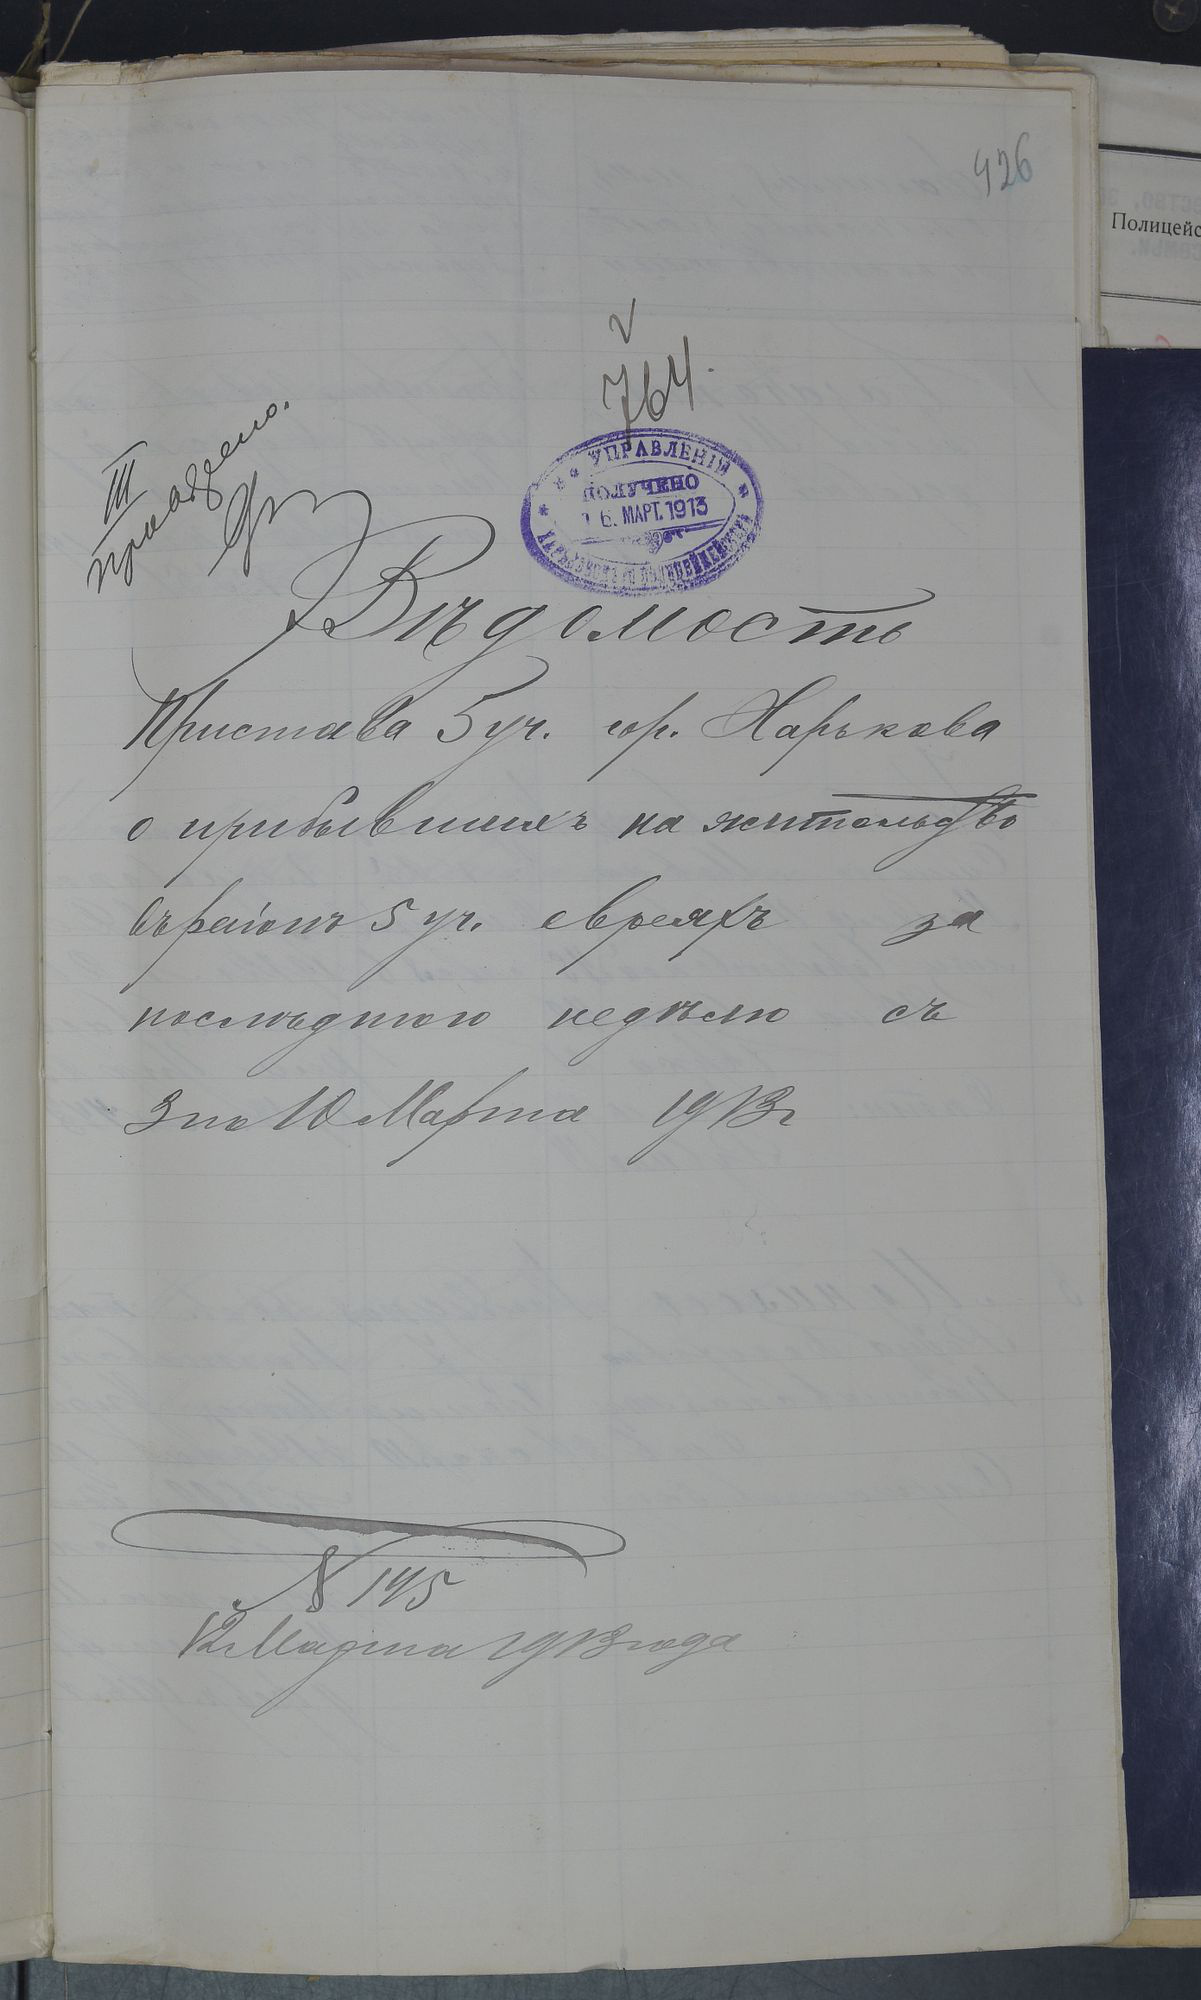 426
Полицейс
764.
III
УПРАВЛЕНІИ
ПОЛУЧЕНО
16. МАРТ. 1913
Вѣдомость
Пристава 5 уч. гор. Харькова
о прибывшихъ на жительство
въ районъ 5 уч. евреяхъ за
послѣднюю недѣлю съ
3 по 10 Марта 1913 г
№ 145
12 Марта 1913 года